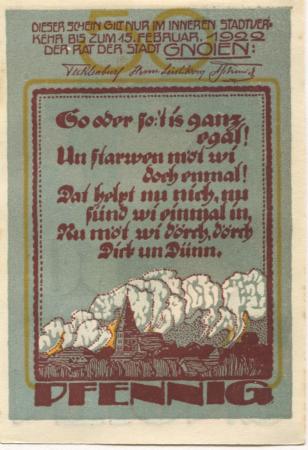 DIESER SCHEIN GILT NUR IM INNEREN STADTVER-
KEHR BIS ZUM 15. FEBRUAR 1922
DER RAT DER STADT GNOIEN:
So oder so: 't is ganz
egal!
Un starwen möt wi
doch enmal!
Dat helpt nu nich, nu
sünd wi einmal in,
Nu möt wi dörch, dörch
Dick un Dünn.
PFENNIG